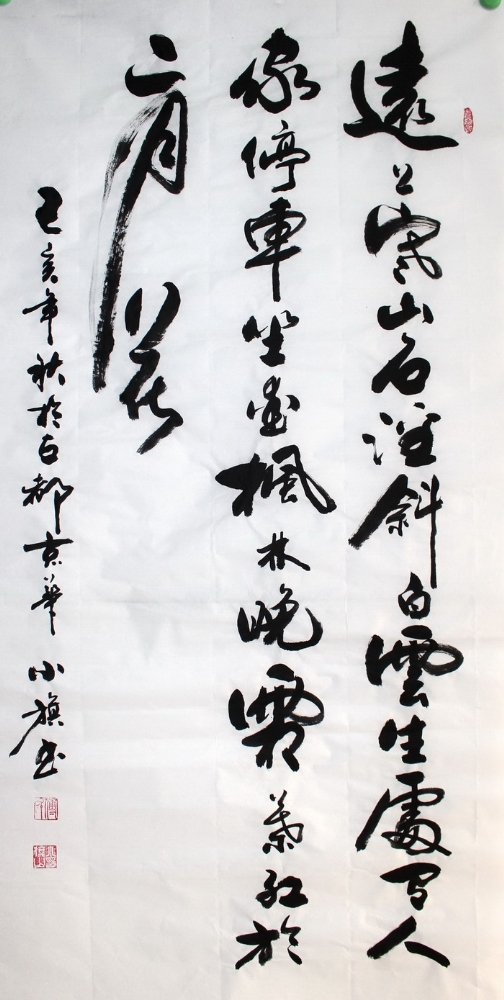 遠上寒山石徑斜白雲生處有人
家停車坐愛楓林晚霜葉紅於
二月花
己亥年秋於古都京華小旗書